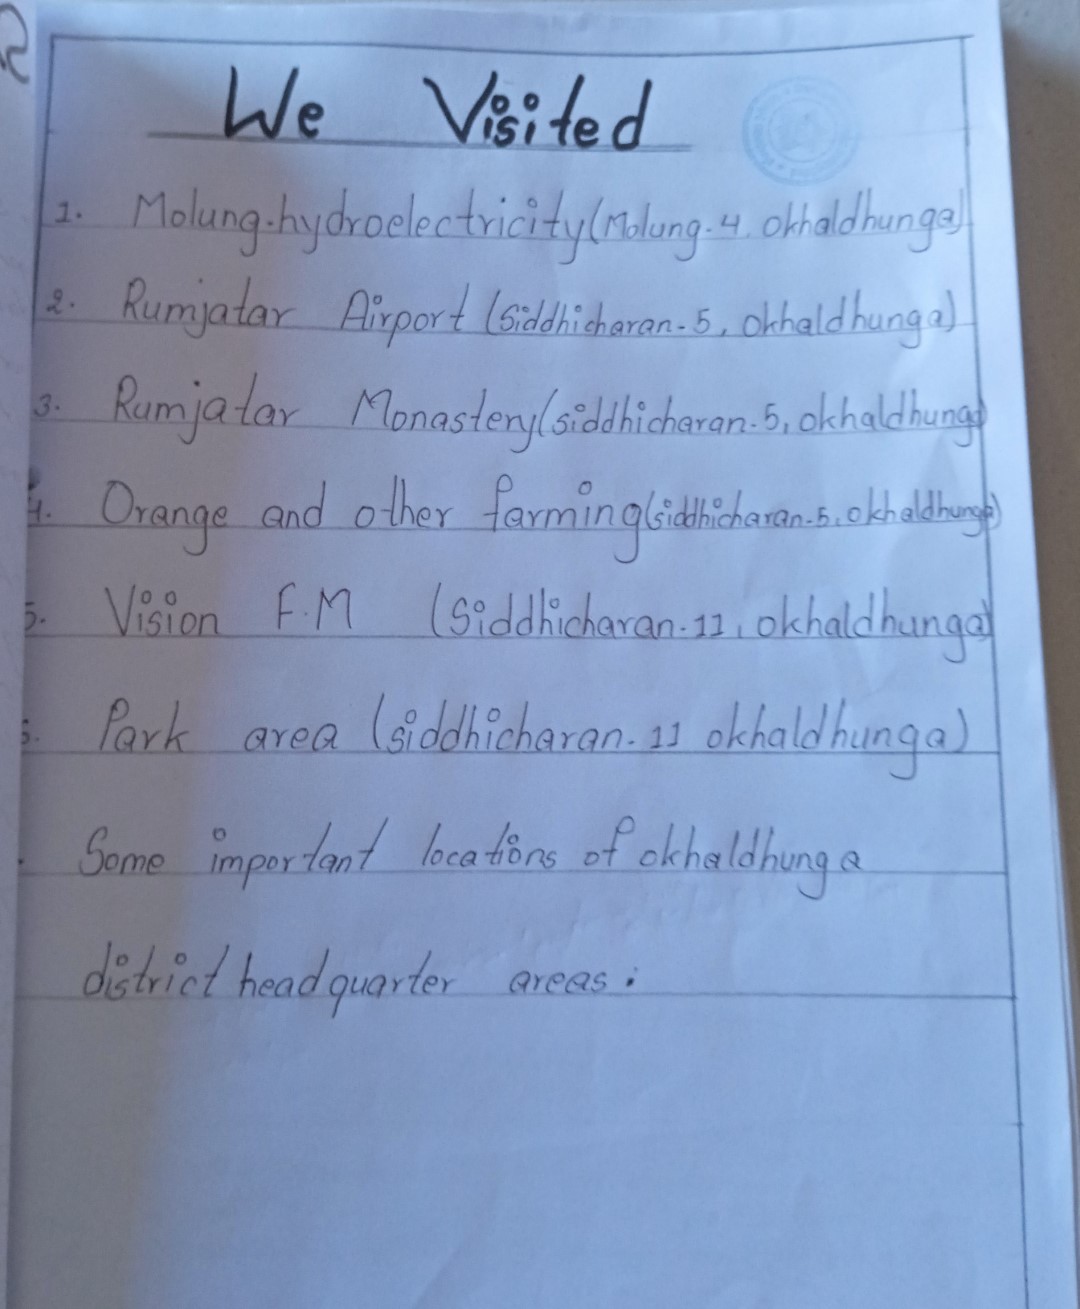 We Visited
1. Molung-hydroelectricity (Molung-4, okhaldhunga)
2. Rumjatar Airport (Siddhicharan-5, okhaldhunga)
3. Rumjatar Monastery (siddhicharan-5, okhaldhunga)
4. Orange and other farming (siddhicharan-5, okhaldhunga)
5. Vision F.M (Siddhicharan-11, okhaldhunga)
6. Park area (siddhicharan-11 okhaldhunga)
. Some important locations of okhaldhunga
district headquarter areas.